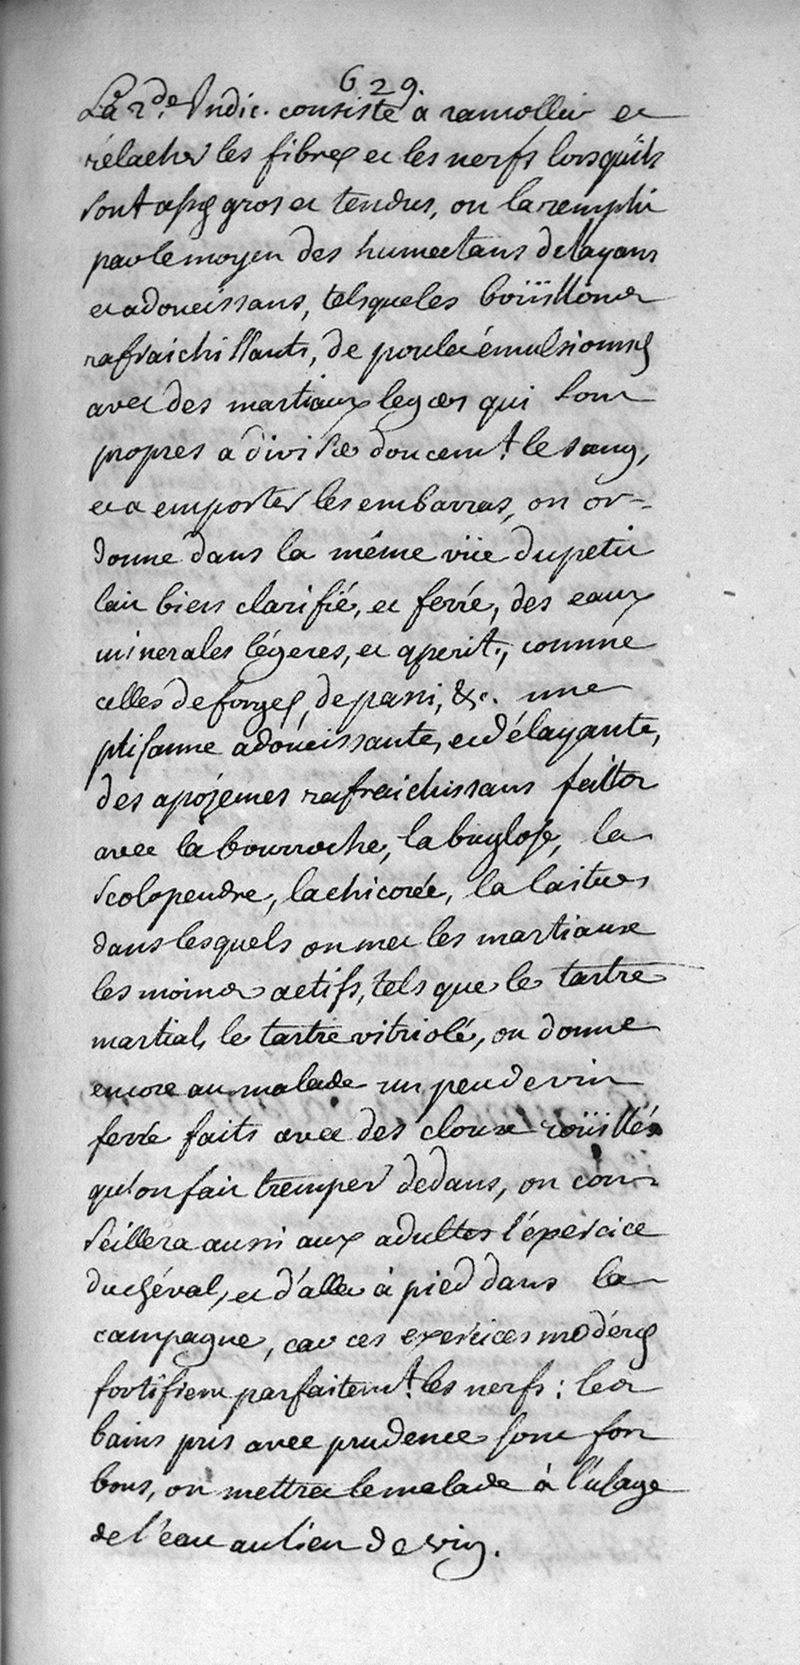 629.
La 2.de Indic. consiste a ramollir et
rélacher les fibres et les nerfs lorsqu'ils
sont assés gros et tendus, on la remplit
par le moyen des humectans delayans
et adoucissans, tels que les boüillons
rafraichissants, de poulet émulsionnés
avec des martiaux legers qui sont
propres a diviser doucemt. le sang,
et a emporter les embarras, on or-
donne dans la méme vüe du petit
lait bien clarifié, et ferré, des eaux
minerales légeres, et aperit., comme
celles de forges, de passi, &c. une
ptisanne adoucissante, et délayante,
des apojemes rafraichissans faittes
avec la bourroche, la buglose, la
scolopendre, la chicorée, la laitues
dans lesquels on met les martiaux
les moins actifs, tels que le tartre
martial, le tartre vitriolé, on donne
encore au malade un peu de vin
ferré faits avec des cloux roüillés
qu'on fait tremper dedans, on con-
seillera aussi aux adultes l'éxercice
du chéval, et d'aller à pied dans la
campagne, car ces exercices modérés
fortifient parfaitemt. les nerfs: les
bains pris avec prudence sont fort
bons, on mettra le malade à l'usage
de l'eau au lieu de vin.